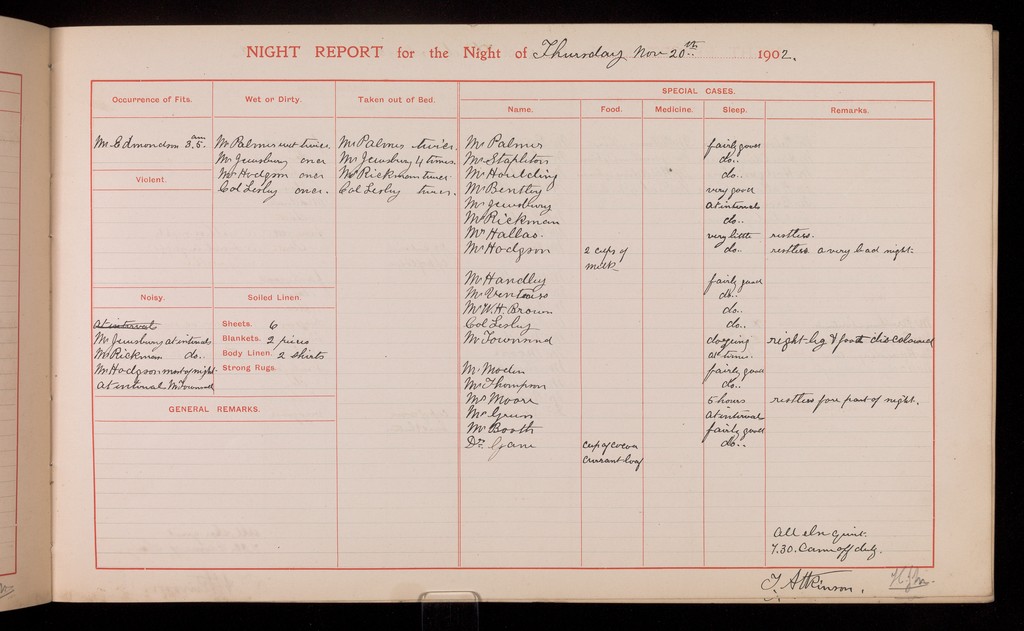 NIGHT REPORT for the Night of Thursday Nov 20th 1902.
Occurrence of Fits.
Mr Edmondson 3.5. am
Violent.
Noisy.
at interval
Mr Jewsbury at intervals
Mr Rickman do..
Mr Hodgson most of night
at interval Mr Townsend
Wet or Dirty.
Mr Palmer wet twice.
Mr Jewsbury once
Mr Hodgson once
Col Lesley once.
Soiled Linen.
Sheets. 6
Blankets. 2 pieces
Body Linen. 2 shirts
Strong Rugs.
GENERAL REMARKS.
Taken out of Bed.
Mr Palmer twice.
Mr Jewsbury 4 times.
Mr Rickman twice
Col Lesley twice.
SPECIAL CASES.
Name. Food. Medicine. Sleep. Remarks.
Mr Palmer fairly good
Mr Stapleton do..
Mr Houlding do..
Mr Bentley very good
Mr Jewsbury at intervals
Mr Rickman do..
Mr Hallas. very little restless.
Mr Hodgson 2 cups of do.. restless a very bad night.
milk
Mr Handley fairly good
Mr do..
Mr W.H. Brown do..
Col Lesley do..
Mr Townsend dozing right leg & foot discoloured
at times.
Mr fairly good
Mr Thompson do..
Mr Moore 5 hours restless fore part of night.
Mr Green at interval
Mr Booth fairly good
Dr. cup of cocoa do..
currant loaf
All else quiet.
7.30. Came off duty.
T. Atkinson.